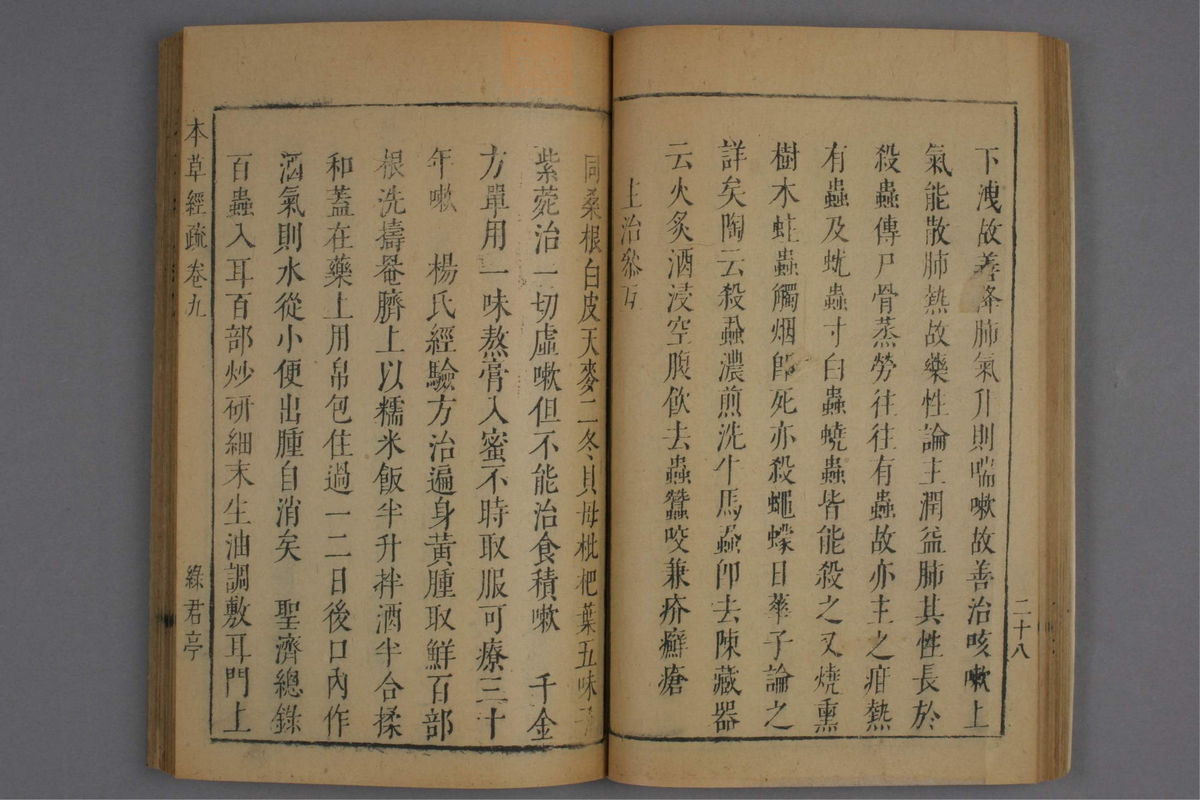 二十八
下洩故善降肺氣升則喘嗽故善治咳嗽上
氣能散肺熱故藥性論主潤益肺其性長於
殺蟲傳尸骨蒸勞往往有蟲故亦主之疳熱
有蟲及蚘蟲寸白蟲蟯蟲皆能殺之又燒熏
樹木蛀蟲觸烟卽死亦殺蠅蠓日華子論之
詳矣陶云殺蝨濃煎洗牛馬蝨卽去陳藏器
云火炙酒浸空腹飲去蟲蠶咬兼疥癬瘡
主治叅互
同桑根白皮天麥二冬貝母枇杷葉五味子
紫菀治一切虛嗽但不能治食積嗽　千金
方單用一味熬膏入蜜不時取服可療三十
年嗽　楊氏經驗方治遍身黃腫取鮮百部
根洗擣罨臍上以糯米飯半升拌酒半合揉
和蓋在藥上用帛包住過一二日後口內作
酒氣則水從小便出腫自消矣　聖濟總錄
百蟲入耳百部炒研細末生油調敷耳門上
本草經疏 卷九 綠君亭